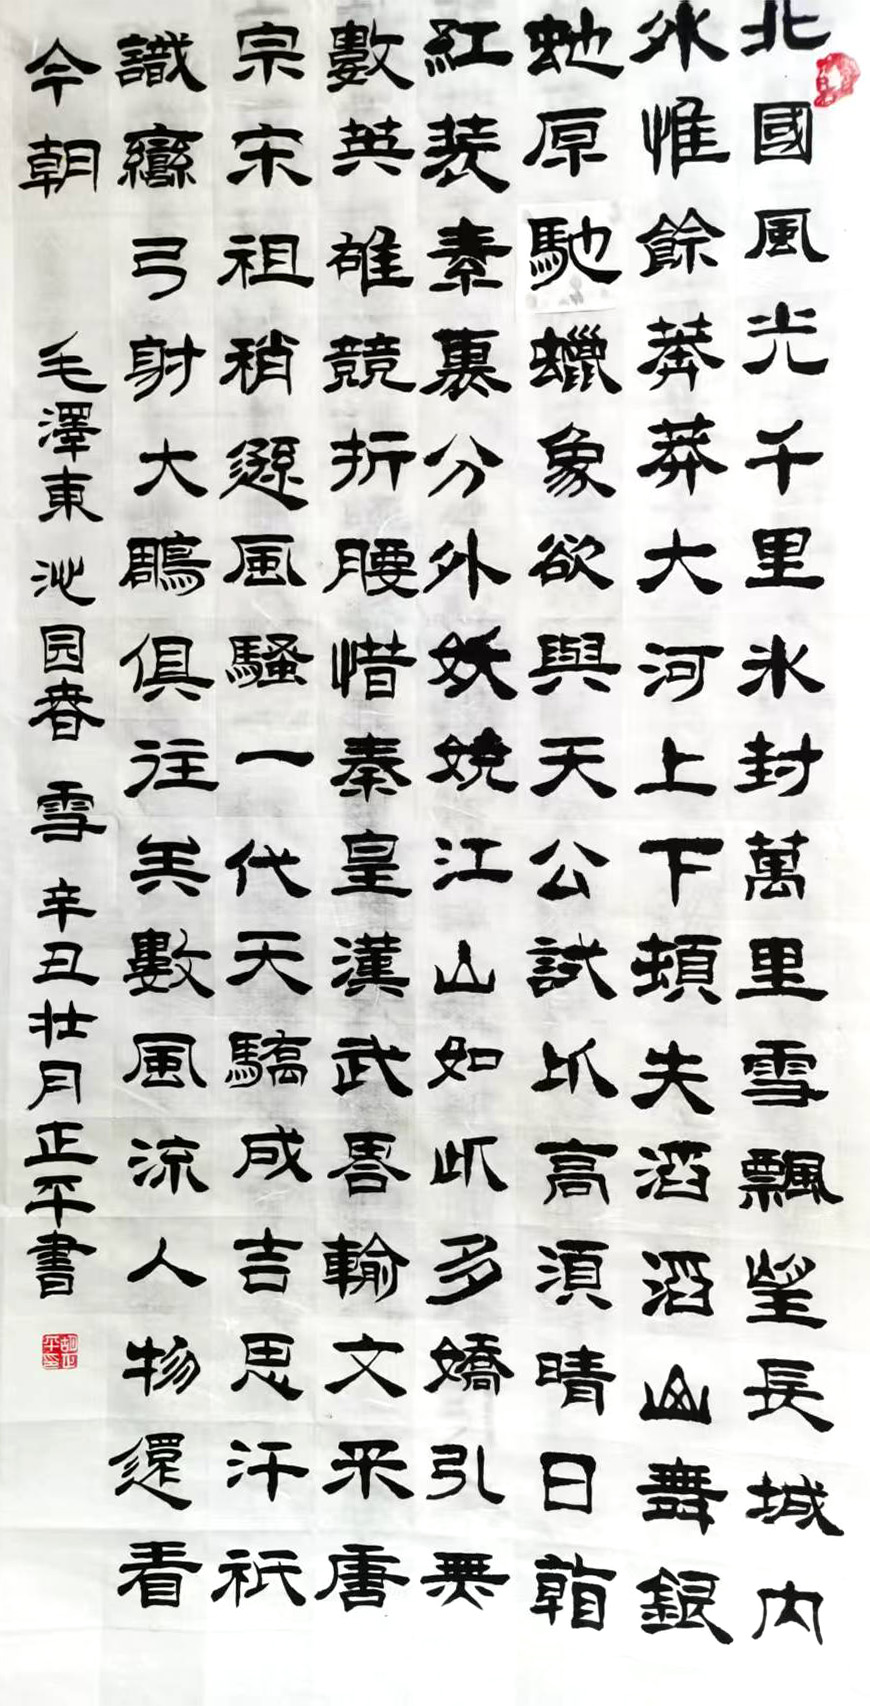 北國風光千里冰封萬里雪飄望長城内
外惟餘莽莽大河上下頓失滔滔山舞銀
虵原馳蠟象欲與天公試比高須晴日看
紅裝素裹分外妖嬈江山如此多嬌引無
數英雄競折腰惜秦皇漢武畧輸文采唐
宗宋祖稍遜風騷一代天驕成吉思汗祇
識彎弓射大鵰俱往矣數風流人物還看
今朝 毛澤東 沁园春 雪 辛丑壮月正平書